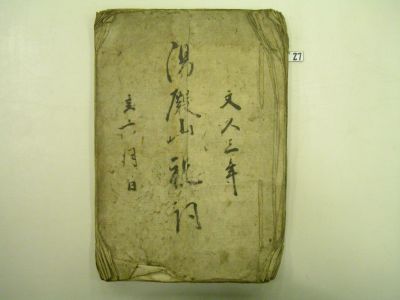 27
文久三年
湯殿山祝詞
亥六月日